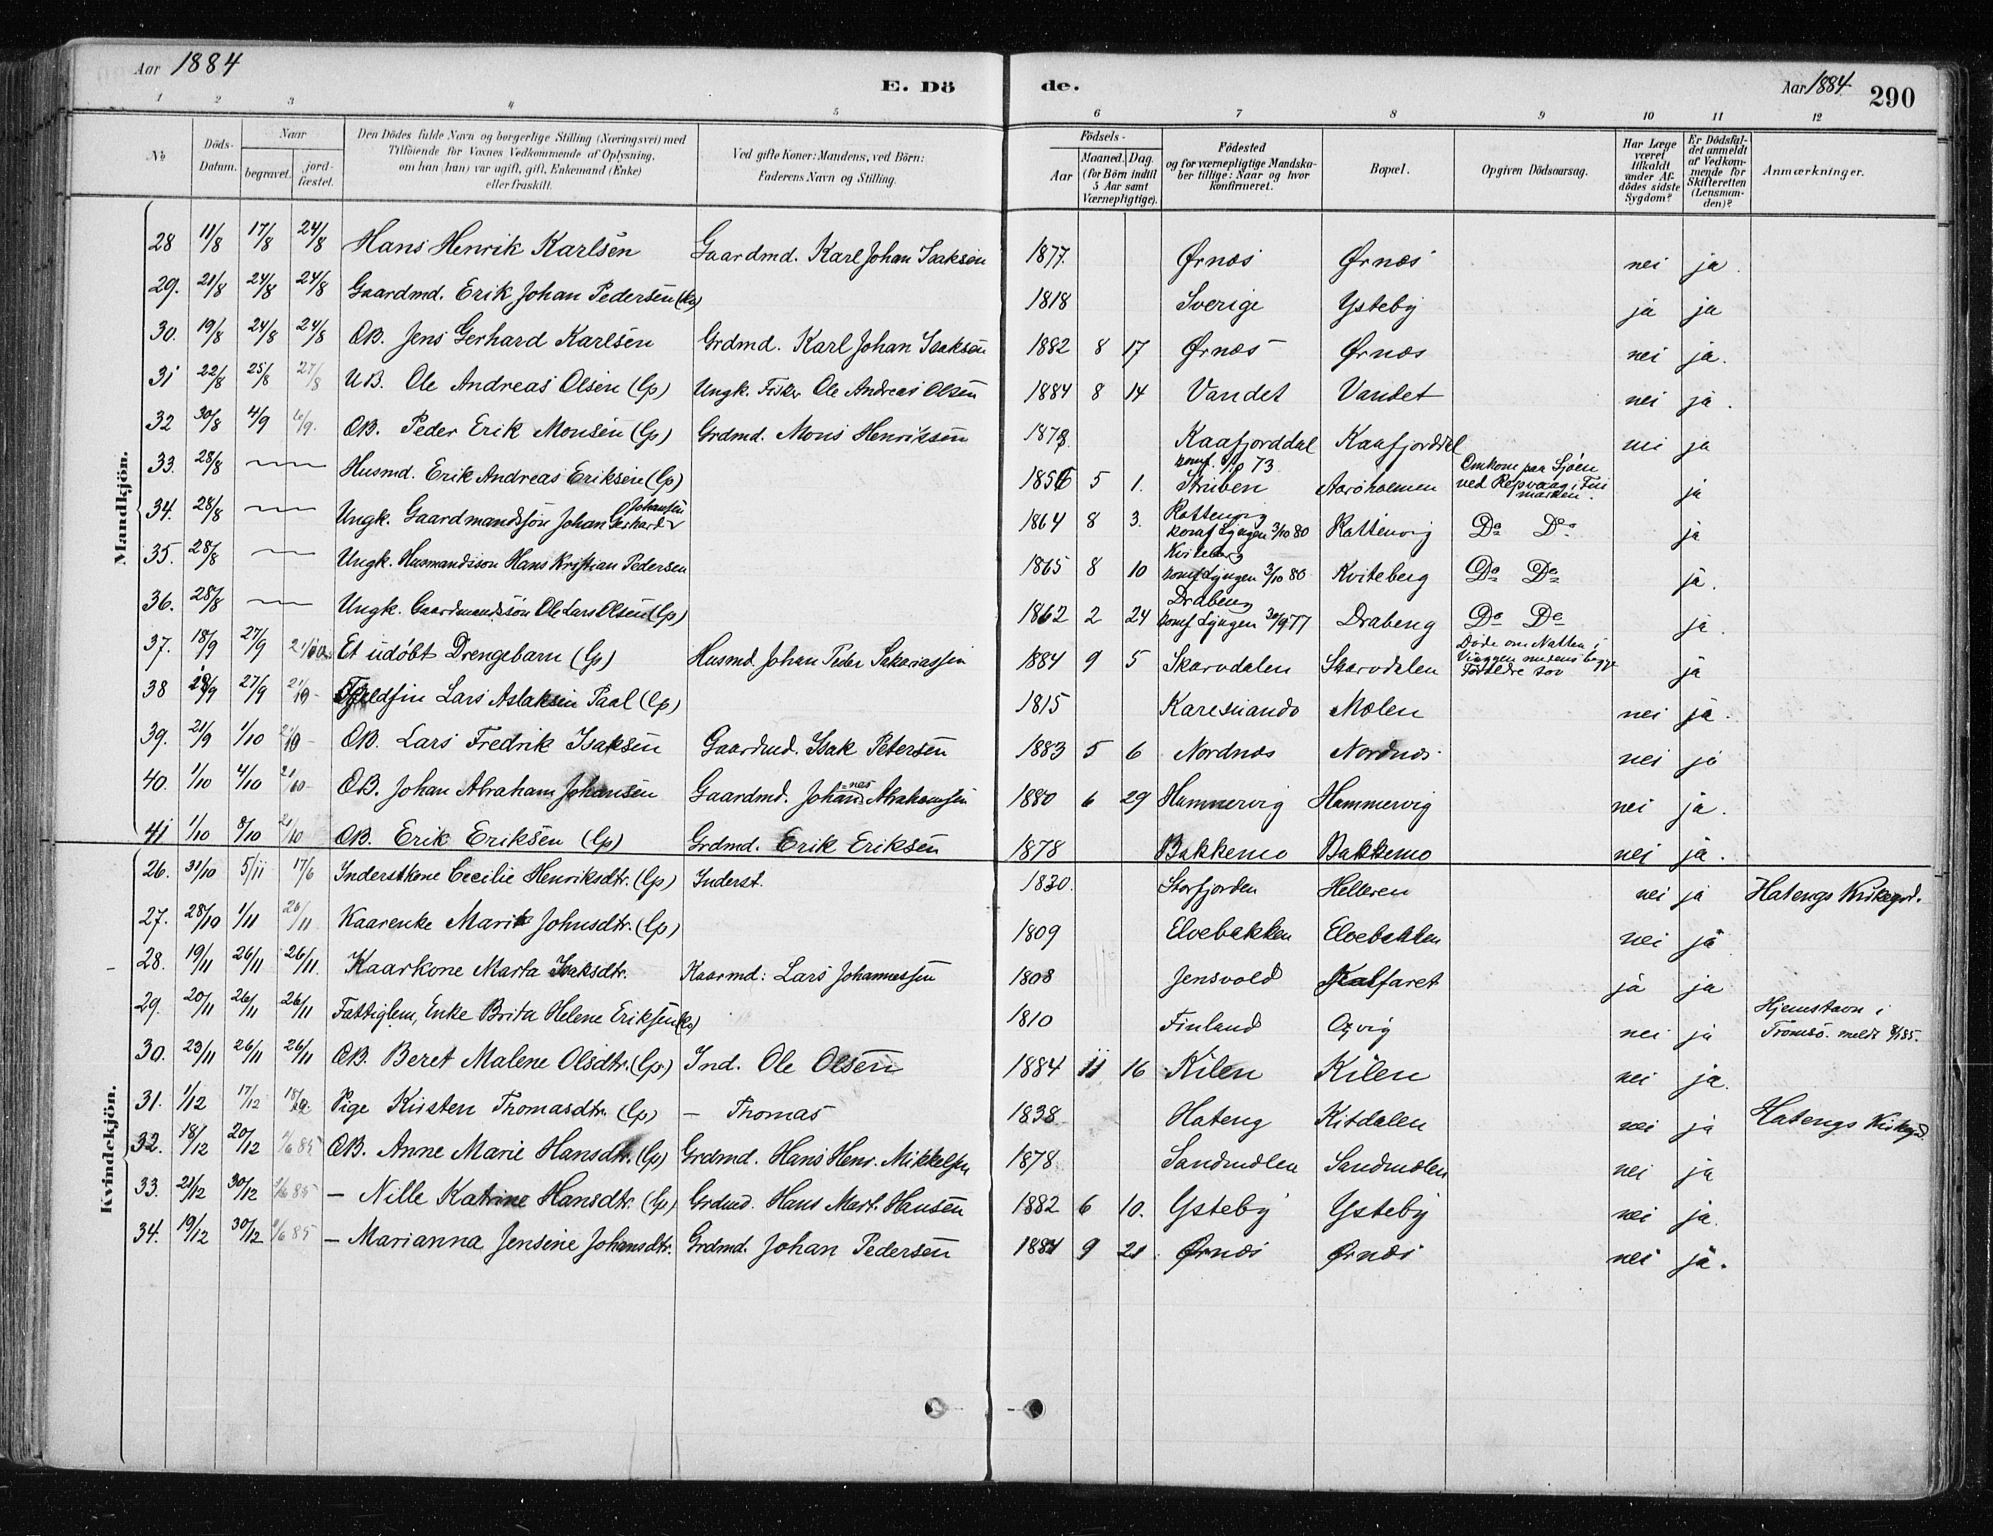 Aar 1884
E. Dö
de.
Aar 1884
290
1 2 3 4 5 6 7 8 9 10 11 12
No
Döds-Datum.
Naar
begravet.
jord-fæstet.
Den Dödes fulde Navn og borgerlige Stilling (Næringsvei) med
Tilföiende for Voxnes Vedkommende af Oplysning,
om han (hun) var ugift, gift, Enkemand (Enke)
eller fraskilt.
Ved gifte Koner: Mandens, ved Börn:
Faderens Navn og Stilling.
Födsels-
Aar
Maaned. Dag.
(for Börn indtil
5 Aar samt
Værnepligtige).
Födested
og for værnepligtige Mandska-
ber tillige: Naar og hvor
konfirmeret.
Bopæl.
Opgiven Dödsaarsag.
Har Læge
været
tilkaldt
under Af-
dödes sidste
Sygdom?
Er Dödsfal-
det anmeldt
af Vedkom-
mende for
Skifteretten
(Lensman-
den)?
Anmærkninger.
Mandkjön.
28 11/8 17/8 24/8 Hans Henrik Karlsen Gaardmd. Karl Johan Isaksen 1877. Ørnæs Ørnæs nei ja.
29. 21/8 24/8 24/8 Gaardmd. Erik Johan Pedersen 1818 Sverige Ysteby ja ja
30. 19/8 24/8 24/8 ÆB. Jens Gerhard Karlsen Grdmd. Karl Johan Isaksen 1882 8 17 Ørnæs Ørnæs nei ja.
31 22/8 25/8 27/8 UB. Ole Andreas Olsen (Lp) Ungk. Fisker Ole Andreas Olsen 1884 8 14 Vandet Vandet nei ja.
32 30/8 4/9 6/9. ÆB. Peder Erik Monsen (Lp) Grdmd. Mons Henriksen Kaafjorddal Kaafjorddal nei ja
33. 28/8 Husmd. Erik Andreas Eriksen (Lp) 5 1. konf. 73 Struben Aarøholmen Omkom paa Sjøen
ved Repvaag i Fin
marken. ja
34. 28/8 Ungk. Gaardmandssøn Johan Gerhard Johansen 1864 8 3. Rottenvig
konf Lyngen 3/10 80 Rottenvig Do Do ja
35. 28/8 Ungk. Husmandsson Hans Kristian Pedersen 1865 8 10 Kviteberg
konf Lyngen 3/10 80 Kviteberg Do Do ja.
36. 28/8 Ungk. Gaardmandssøn Ole Lars Olsen (Lp) 1862 2 24 Drabeng
konf Lyngen 30/9 77 Drabeng Do Do ja.
37. 18/9 27/9 21/10 Et udøbt Drengebarn (Lp) Husmd. Johan Peder Sakariassen 1884 9 5 Skarvdalen Skarvdalen Døde om Natten i
Vuggen mens begge
Forældre sov ja
38 27/9 21/10 Fjeldfin Lars Aslaksen Paal (Lp) 1815 Karesuando Molen nei ja.
39. 21/9 1/10 21/10 ÆB. Lars Fredrik Isaksen Gaardmd. Isak Petersen 1883 5 6 Nordnæs Nordnæs nei ja
40. 1/10 4/10 21/10 ÆB. Johan Abraham Johansen Gaardmd. Johannes Abrahamsen 1880 6 29 Hammervig Hammervig nei ja.
41 1/10 8/10 21/10 ÆB. Erik Eriksen (Lp) Grdmd. Erik Eriksen 1878 Bakkemo Bakkemo nei ja.
Kvindekjön.
26. 31/10 5/11 17/6 Inderstkone Cecilie Henriksdtr. (Lp) Inderst. 1830. Storfjorden Helleren nei ja Hatengs Kirkegrd.
27. 28/10 1/11 26/11 Kaarenke Marit Johnsdtr. (Lp) 1809 Elvebakken Elvebakken nei ja
28. 19/11 26/11 26/11 Kaarkone Marta Isaksdtr. Kaarmd: Lars Johannessen 1808 Jensvold Kalfaret ja ja
29. 20/11 26/11 26/11 Fattiglem, Enke Brita Helene Eriksen 1810 Finland Ozvig nei ja Hjemstavn i
Tromsö. meldt 8/1 85.
30. 23/11 26/11 26/11 ÆB. Beret Malene Olsdtr. (Lp) Ind. Ole Olsen 1884 11 16 Kilen Kilen nei ja.
31. 1/12 17/12 18/12 Pige Kirsten Thomasdtr. (Lp) – Thomas 1838 Hateng Kitdalen nei ja Hatengs Kirkegd.
32. 18/12 20/12 ÆB. Anne Marie Hansdtr. (Lp) Grdmd. Hans Henr. Mikkelsen 1878 Sandmølen Sandmølen nei ja
33. 21/12 30/12 2/6 85 – Nille Katrine Hansdtr. (Lp) Grdmd. Hans Mart. Hansen 1882 6 10. Ysteby Ysteby nei ja.
34. 19/12 30/12 2/6 85 – Marianna Jensine Johansdtr. Grdmd. Johan Pedersen 1884 9 21. Ørnæs Ørnæs nei ja.